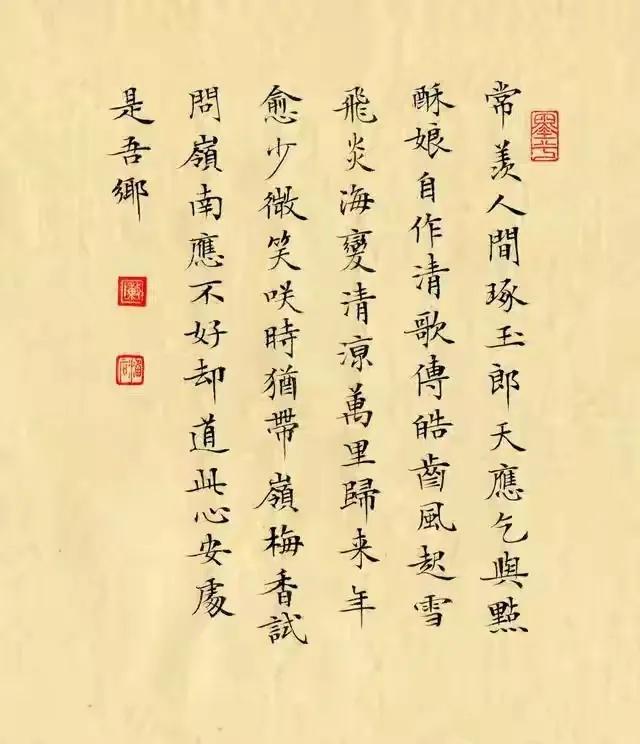 常羨人間琢玉郎天應乞與點
酥娘自作清歌傳皓齒風起雪
飛炎海變清涼萬里歸来年
愈少微笑咲時猶帶嶺梅香試
問嶺南應不好却道此心安處
是吾鄉